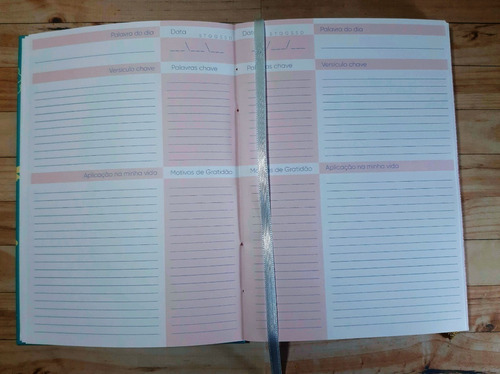 Palavra do dia
Data
Data
Palavra do dia
Versículo chave
Palavras chave
Palavras chave
Versículo chave
Aplicação na minha vida
Motivos de Gratidão
Motivos de Gratidão
Aplicação na minha vida